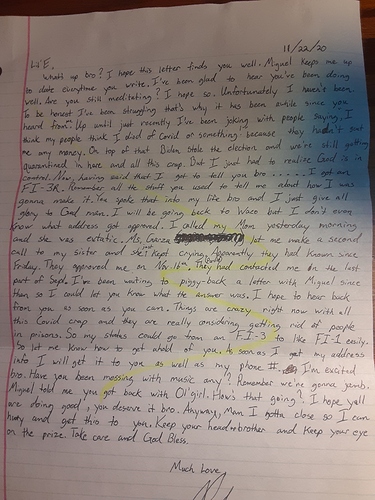 11/22/20
Lil' E.
What's up bro? I hope this letter finds you well. Miguel keeps me up
to date everytime you write. I've been glad to hear you've been doing
well. Are you still meditating? I hope so. Unfortunately I haven't been
To be honest I've been struggling that's why it has been awhile since you
heard from. Up until just recently I've been joking with people saying, I
think my people think I died of Covid or something because they hadn't sent
me any money. On top of that Biden stole the election and we're still getting
quarantined in here and all this crap. But I just had to realize God is in
control. Now, having said that I got to tell you bro ...... I got an
FI-3R. Remember all the stuff you used to tell me about how I was
gonna make it. You spoke that into my life bro and I just give all
glory to God man. I will be going back to Waco but I don't even
know what address got approved. I called my Mom yesterday morning
and she was extatic. Ms. Garza let me make a second
call to my sister and she just kept crying. Apparently they had known since
Friday. They approved me on Nov. 16th. They had contacted me in the last
part of Sept. I've been waiting to piggy-back a letter with Miguel since
then so I could let you know what the answer was. I hope to hear back
from you as soon as you can. Things are crazy right now with all
this Covid crap and they are really considering getting rid of people
in prisons. So my status could go from an FI-3 to like FI-1 easily.
So let me know how to get ahold of you. As soon as I get my address
info I will get it to you as well as my phone #. I'm excited
bro. Have you been messing with music any? Remember we're gonna jamb.
Miguel told me you got back with Ol' girl. How's that going? I hope yall
are doing good, you deserve it bro. Anyway, Man I gotta close so I can
hurry and get this to you. Keep your head up brother and keep your eye
on the prize. Take care and God Bless.
Much Love,